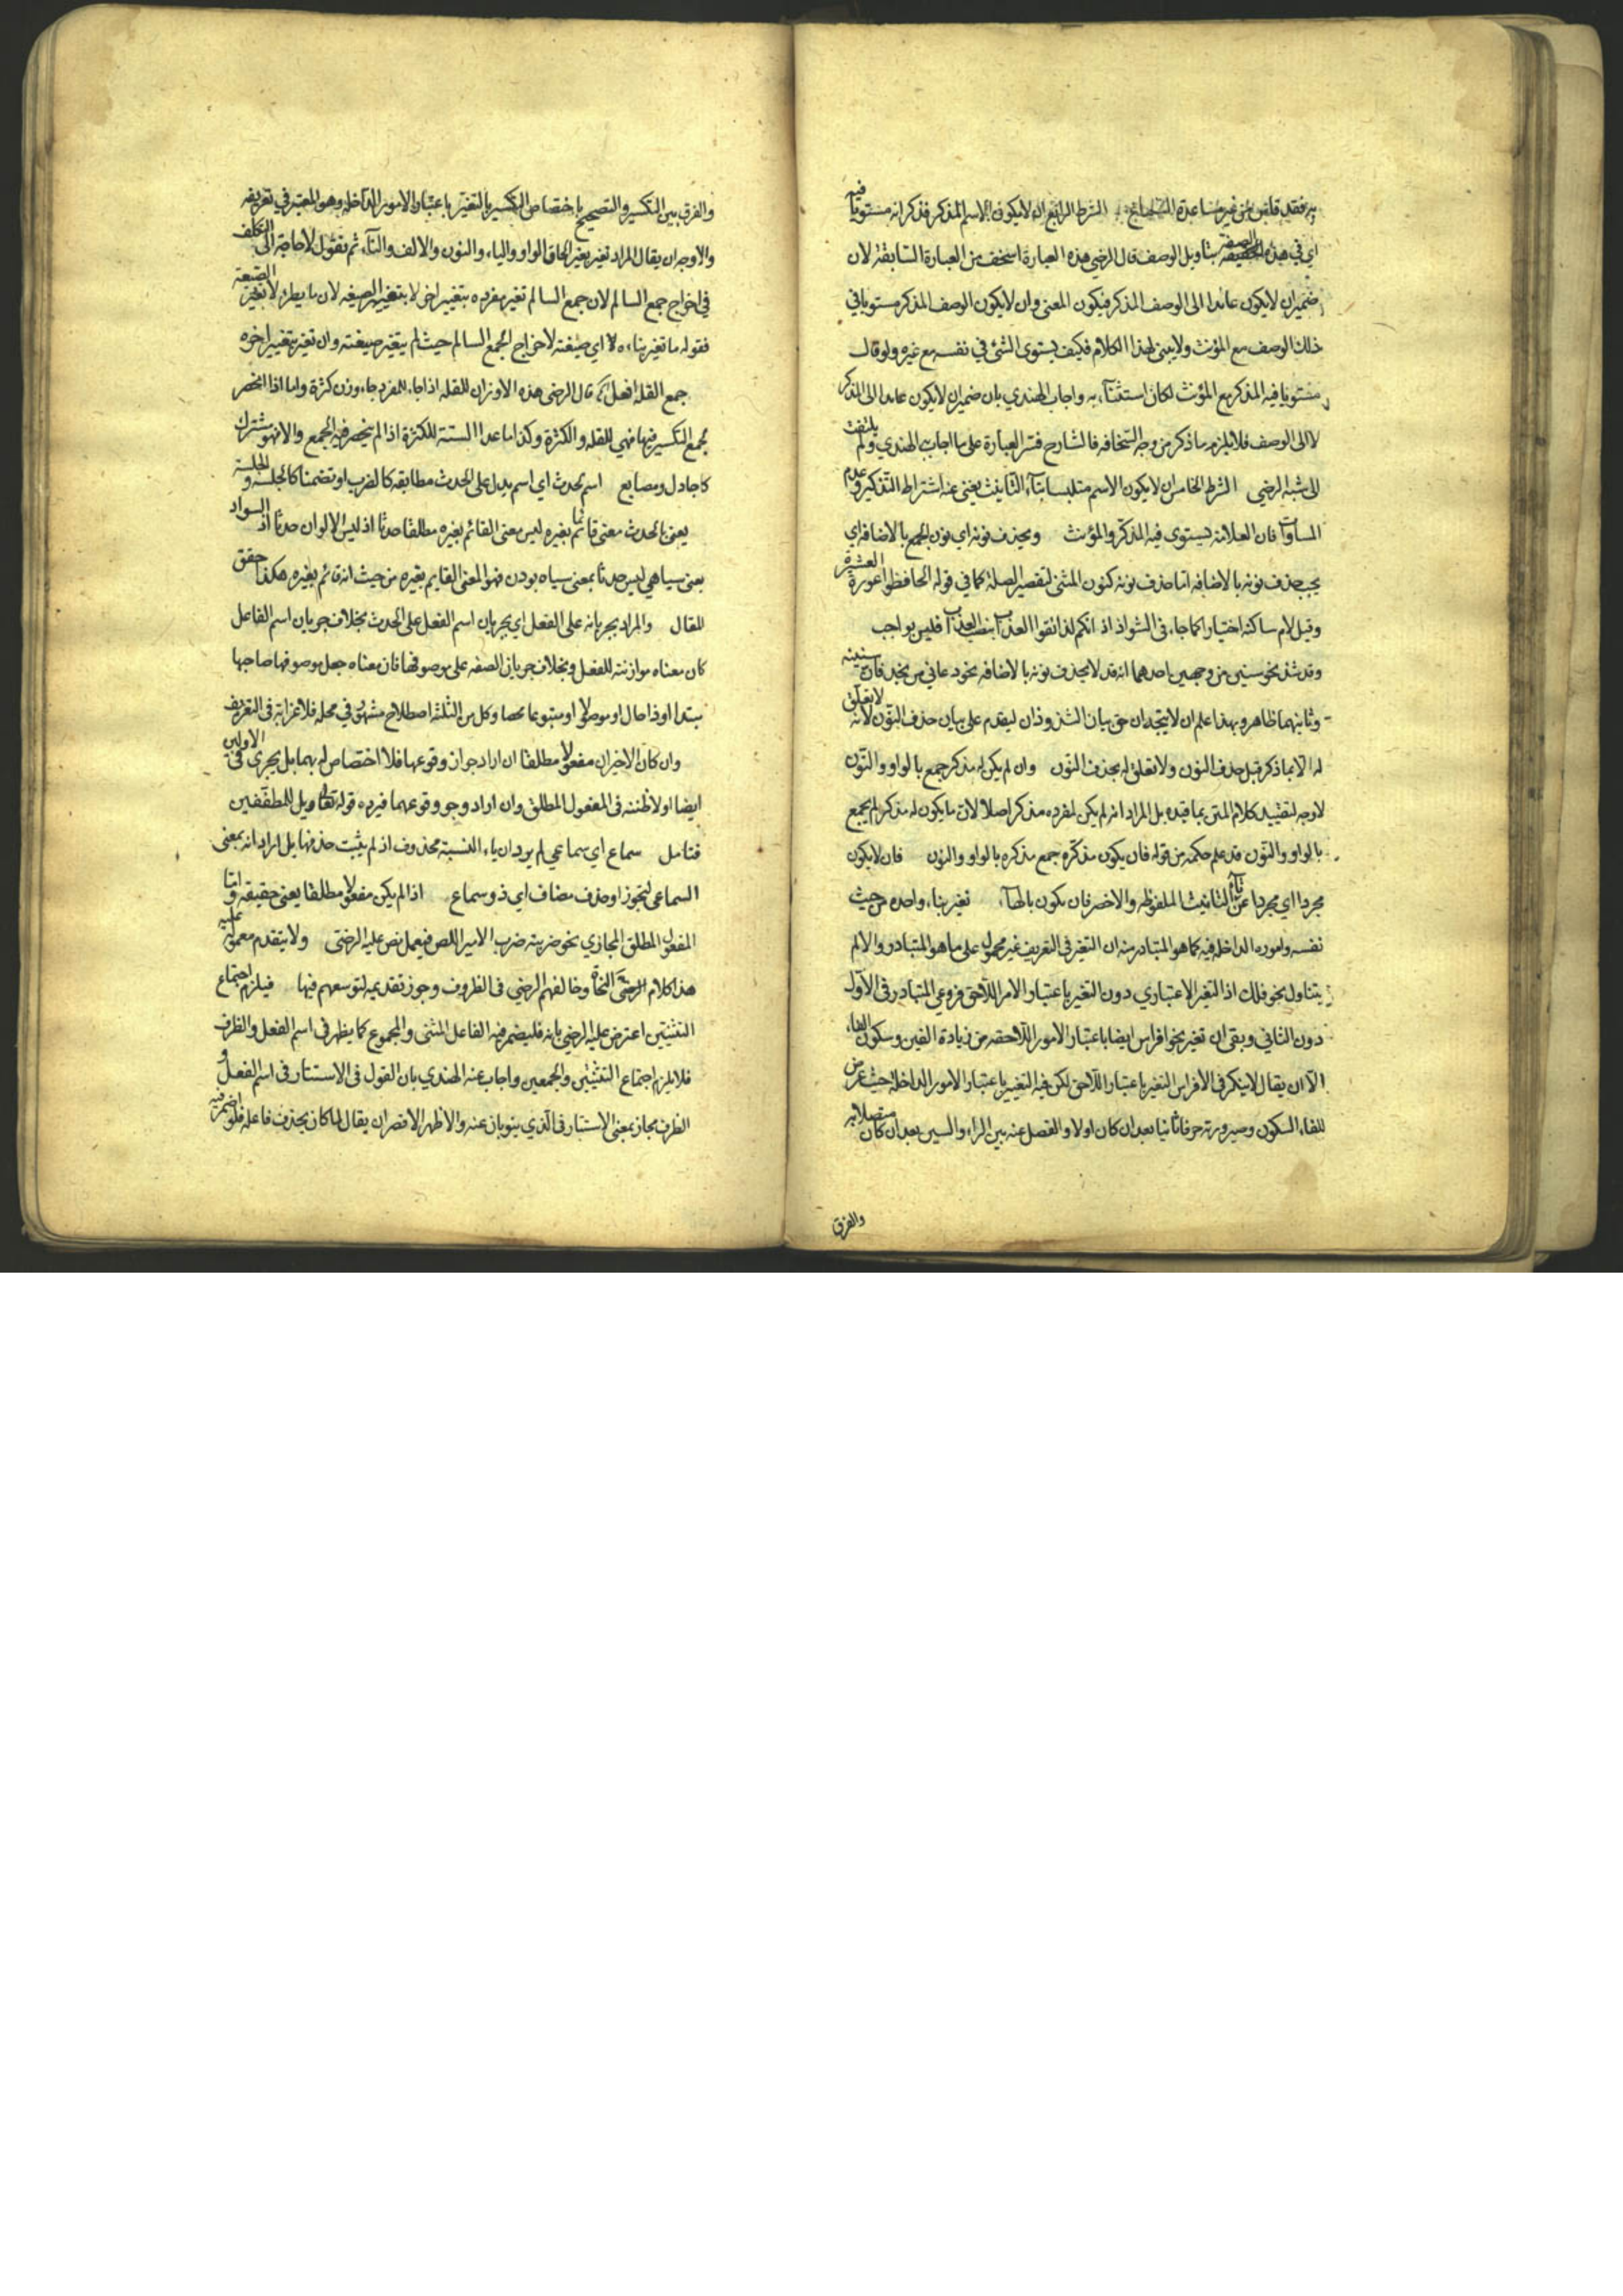 به فقد قلبي عن غير مساعدة الشرط الرابع ان لا يكون الاسم المذكر فذكر انه مستويا فيه
اي في هذه الصفة بتأويل الوصف قال الرضي هذه العبارة اسخف من العبارة السابقة لان
ضمير ان لا يكون عائدا الى الوصف المذكر فيكون المعنى وان لا يكون الوصف المذكر مستويا في
ذلك الوصف مع المؤنث ولا يبنى لهذا الكلام فكيف يستوي الشئ في نفسه مع غيره ولو قال
مستويا فيه المذكر مع المؤنث لكان استثناء به واجاب الهندي بان ضمير ان لا يكون عائد الى المذكر
لا الى الوصف فلا يلزم ما ذكر من وجه السخافه فالشارح فسر العبارة على ما اجاب به الهندي ولم يلتفت
الى شبه الرضي الشرط الخامس ان لا يكون الاسم متلبسا بتاء التأنيث يعني عند اشتراط التذكير وعدم
المساوات فان العلامة يستوي فيه المذكر والمؤنث ويحذف نونه اي نون الجمع بالاضافه اي
يجب حذف نونه بالاضافه اما حذف نونه كنون المثنى لتقصير الصلة كما في قوله الحافظوا عورة العشيرة
وقبل لام ساكنه اختيارا كما جاء في الشواذ اذ انكم لذائقوا العذاب بنصب العذاب فليس بواجب
وقد شذ نحو سنين من وجهين احدهما انه قد لا يحذف نونه بالاضافه نحو دعاني من نجد فان سنينه
وثانيهما ظاهر وبهذا علم ان لا يتجه ان حق بيان الشذوذ ان ليقدم على بيان حذف النون لانه لا تعلق
له الا بما ذكر قبل حذف النون ولا تعلق له بحذف النون وان لم يكن له مذكر جمع بالواو والنون
لا وجه لتقييد كلام المتن بما قيده بل المراد انه لم يكن لمفرده مذكر اصلا لان ما يكون له مذكر لم يجمع
بالواو والنون قد علم حكمه من قوله فان يكون مذكره جمع مذكره بالواو والنون فان لا يكون
مجردا اي مجردا عن تاء التانيث الملفوظه والاخصر فان يكون بالهاء تغير بناء واحده من حيث
نفسه واموره الداخله فيه كما هو المتبادر منه ان التغير في التعريف غير محمول على ما هو المتبادر والا لم
يتناول نحو فلك اذ التغير الاعتباري دون التغير باعتبار الامر اللاحق فروعي المتبادر في الاول
دون الثاني وبقي ان تغير نحو افراس ايضا باعتبار الامور اللاحقه من زيادة الفين وسكون الفاء
الا ان يقال لا ينكر في الافراس التغير باعتبار اللاحق لكن فيه التغيير باعتبار الامور الداخلة حيث عرض
للفاء السكون وصيرورته حرفا ثانيا بعد ان كان اولا والفصل عنه بين الراء والسين بعد ان كان متصلا به
والفرق
والفرق بين التكسير والتصحيح باختصاص التكسير بالتغير باعتبار الامور الداخله وهو المعتبر في تعريفه
والاوجه ان يقال المراد تغير بغير الحاق الواو والياء والنون والالف والتاء ثم نقول لا حاجة الى التكلف
في اخراج جمع السالم لان جمع السالم تغير مفرده بتغيير اخر لا بتغيير الصيغه لان ما يطرء لا تغير الصيغة
فقوله ما تغير بناءه اي صيغته لاخراج الجمع السالم حيث لم يتغير صيغته وان تغير بتغيير اخره
جمع القلة افعل قال الرضي هذه الاوزان للقله اذا جاء للمفرد جاء وزن كثرة واما اذا انحصر
جمع التكسير فيها فهي للقله والكثرة وكذا ما عدا الستة للكثرة اذا لم ينحصر فيه الجمع والا فهو مشترك
كاجادل ومصانع اسم الحدث اي اسم يدل على الحدث مطابقه كالضرب او تضمنا كالجلسة و الجلسة
يعني بالحدث معنى قائما بغيره ليس معنى القائم بغيره مطلقا حدثا اذ ليس الالوان حدثا اذ السواد
بمعنى سياهي ليس حدثا بمعنى سياه بودن فهو المعنى القايم بغيره من حيث انه قائم بغيره هكذا حقق
المقال والمراد بجريانه على الفعل اي بجريان اسم الفعل على الحدث بخلاف جريان اسم الفاعل
كان معناه موازنته للفعل وبخلاف جريان الصفه على موصوفها فان معناه جعل موصوفها صاحبها
مبتدا او ذا حال او موصولا او متبوعا لها وكل من الثلثة اصطلاح مشهور في محله فلا غرابة في التعريف
وان كان الاخيران مفعولا مطلقا ان اراد جواز وقوعها فلا اختصاص له بهما بل يجري في الاولين
ايضا اولا ظننته في المفعول المطلق وان اراد وجو وقوعهما فيرده قوله تعالى ويل للمطففين
فتامل سماع اي سماعي لم يرد ان ياء النسبة محذوف اذ لم يثبت حذفها بل اراد انه بمعنى
السماعي لتجوز او حذف مضاف اي ذو سماع اذا لم يكن مفعولا مطلقا يعني حقيقه واما
المفعول المطلق المجازي نحو ضربته ضرب الامير اللص فيعمل نص عليه الرضي ولا يتقدم معموله عليه
هذا كلام النحاة وخالفهم الرضي في الظروف وجوز تقديمه لتوسعهم فيها فيلزم اجتماع
التثنيتين اعترض عليه الرضي بانه فليضمر فيه الفاعل المثنى والمجموع كما يظهر في اسم الفعل والظرف
فلا يلزم اجتماع التثنيتين والجمعين واجاب عنه الهندي بان القول في الاستتار في اسم الفعل و
الظرف مجاز بمعنى الاستتار في الذي ينوبان عنه والاظهر الاقصر ان يقال لما كان يحذف فاعله فلو اضمر فيه